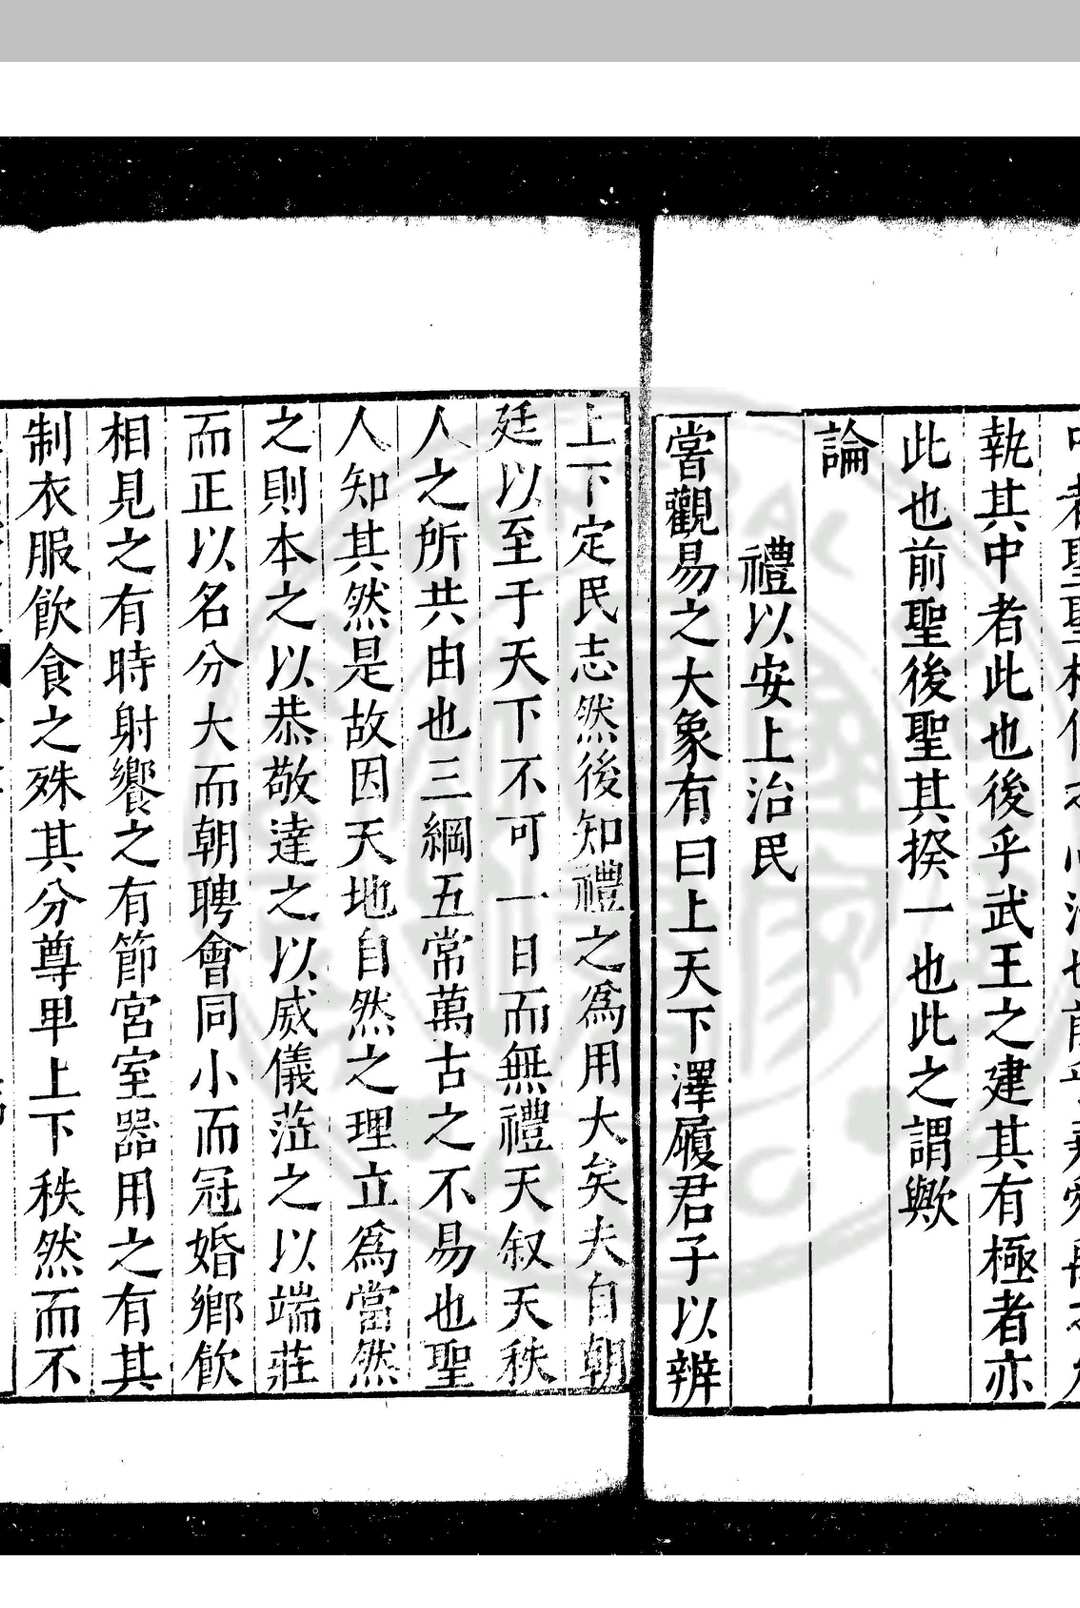 執其中者此也後乎武王之建其有極者亦
此也前聖後聖其揆一也此之謂歟
論
禮以安上治民
嘗觀易之大象有曰上天下澤履君子以辨
上下定民志然後知禮之爲用大矣夫自朝
廷以至于天下不可一日而無禮天叙天秩
人之所共由也三綱五常萬古之不易也聖
人知其然是故因天地自然之理立爲當然
之則本之以恭敬達之以威儀蒞之以端莊
而正以名分大而朝聘會同小而冠婚鄉飲
相見之有時射饗之有節宮室器用之有其
制衣服飲食之殊其分尊卑上下秩然而不